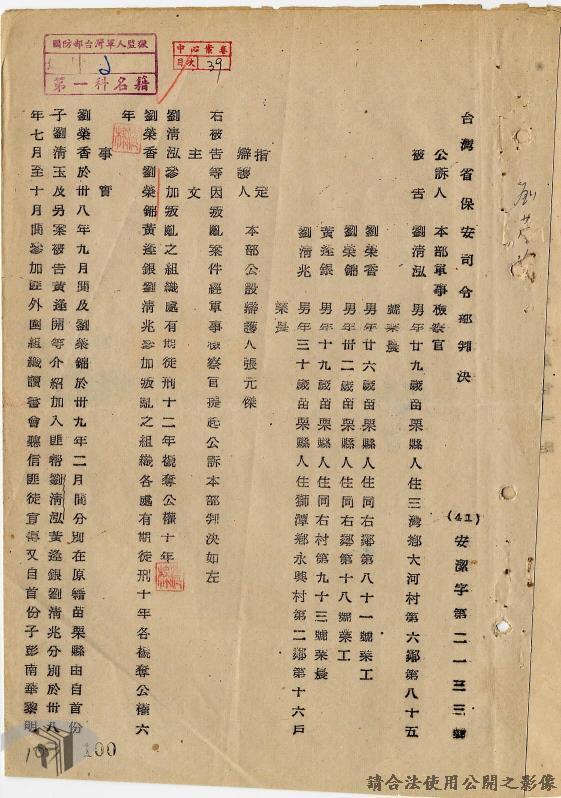 台灣省保安司令部判決
(41)安潔字第二一三三號
公訴人 本部軍事檢察官
被告 劉清泓 男年廿九歲苗栗縣人住三灣鄉大河村第六鄰第八十五
號業農
劉榮香 男年廿六歲苗栗縣人住同右鄰第八十一號業工
劉榮錦 男年卅二歲苗栗縣人住同右鄰第十八號業工
黃逢銀 男年十九歲苗栗縣人住同右村第九十三號業農
劉清兆 男年三十歲苗栗縣人住獅潭鄉永興村第二鄰第十六戶
業農
指定
辯護人 本部公設辯護人張元傑
右被告等因叛亂案件經軍事檢察官提起公訴本部判決如左
主文
劉清泓參加叛亂之組織處有期徒刑十二年褫奪公權十年
劉榮香劉榮錦黃逢銀劉清兆參加叛亂之組織各處有期徒刑十年各褫奪公權六
年
事實
劉榮香於卅八年九月間及劉榮錦於卅九年二月間分別在原籍苗栗縣由自首份
子劉清玉及另案被告黃逢開等介紹加入匪幫劉清泓黃逢銀劉清兆分別於卅八
年七月至十月間參加匪外圍組織讀書會聽信匪徒宣傳又自首份子彭南華黎明
國防部台灣軍人監獄
第一科名籍
中心案卷
目次 39
100
請合法使用公開之影像